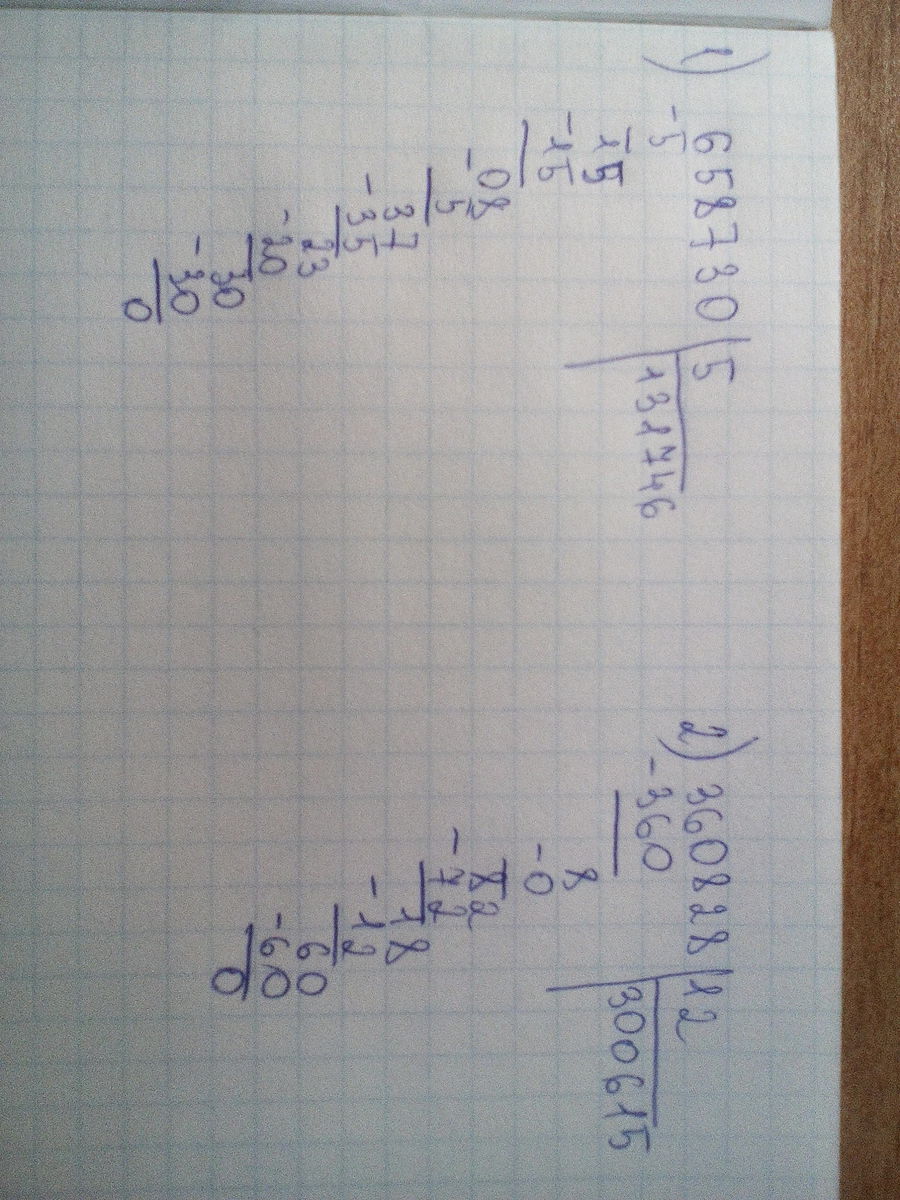 1) 658730 | 5
-5 131746
15
-15
08
-5
37
-35
23
-20
30
-30
0
2) 360828 | 12
-360 300615
8
-0
82
-72
18
-12
60
-60
0